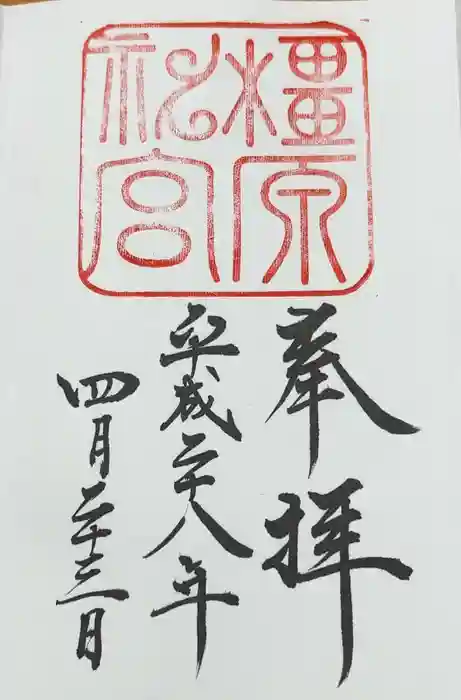 橿原
神宮
奉拝
平成二十八年
四月二十三日